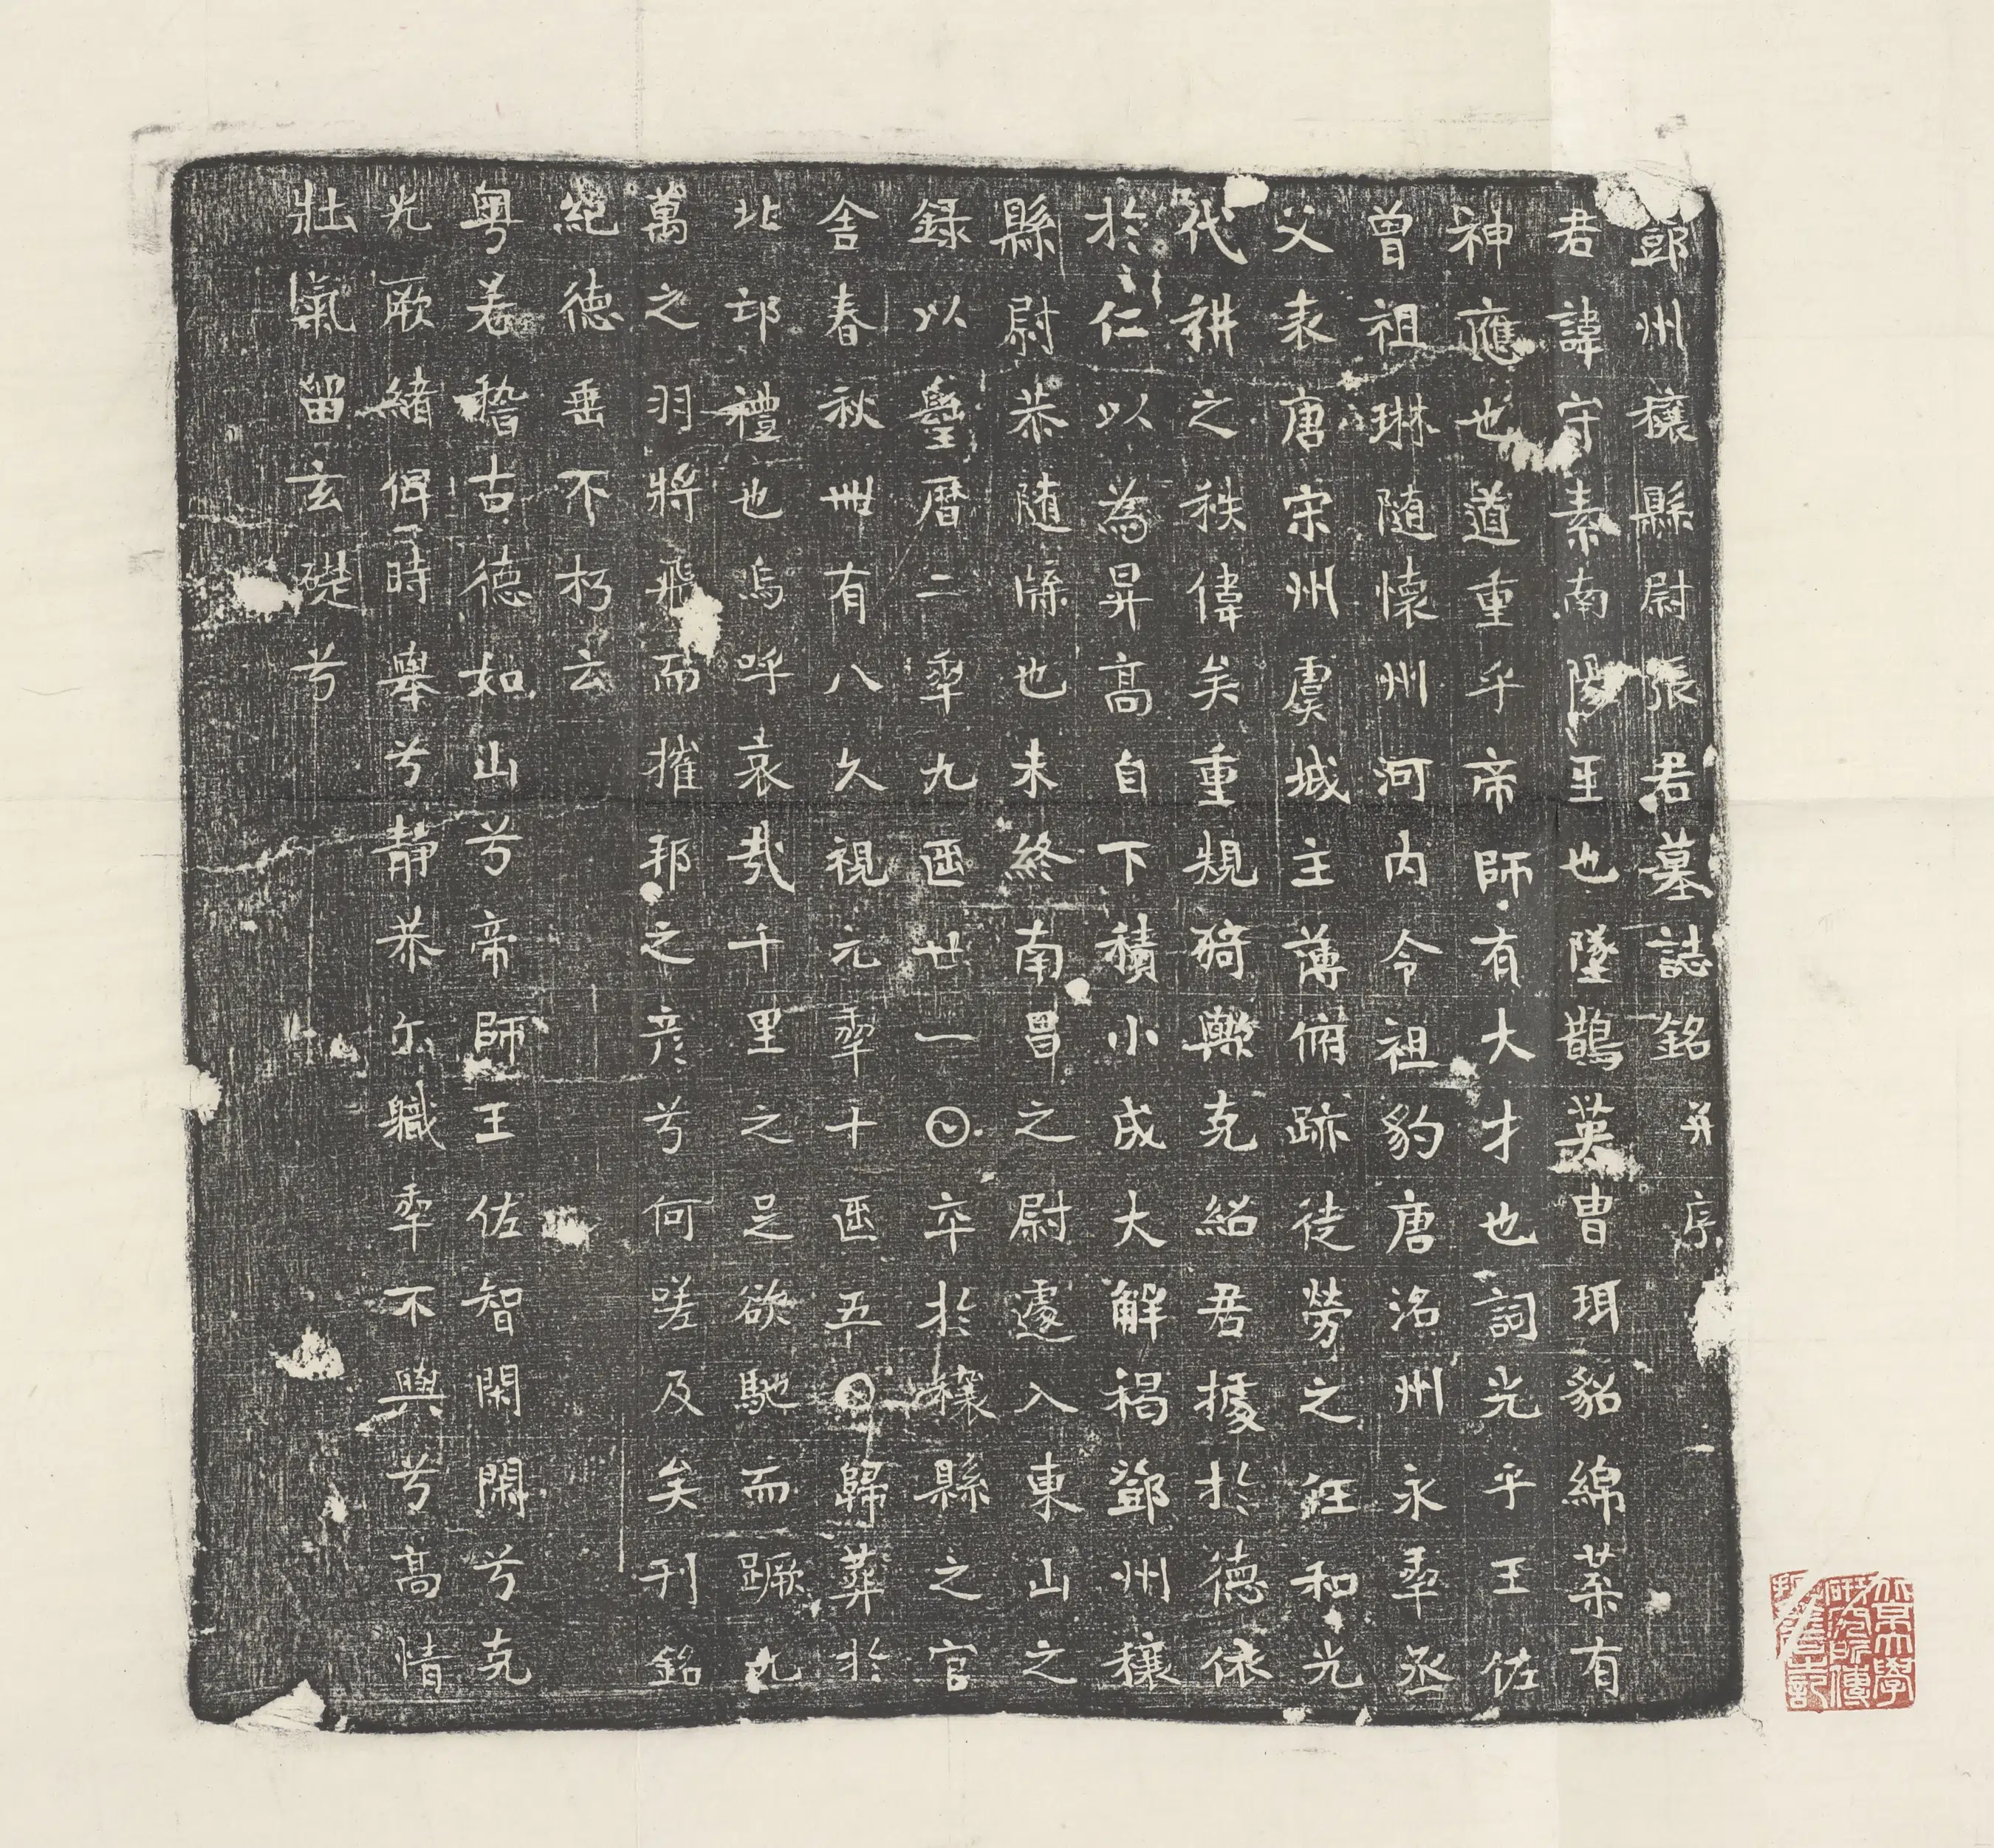 鄧州穰縣尉張君墓誌銘并序
君諱守素南陽𡈼也墜鵲英曹珥貂綿葉有
神應也道重乎帝師有大才也詞光乎王佐
曾祖琳随懷州河内令祖豹唐洺州永𠡦丞
父表唐宋州虞城主薄俯跡徒勞之任和光
代耕之秩偉矣重規猗歟克紹君據於德依
於仁以為昇高自下積小成大解褐鄧州穰
縣尉恭随牒也未終南昌之尉遽入東山之
録以曌曆二𠡦九𠥱廿一𡆠卒於穰縣之官
舍春秋卌有八久視元𠡦十𠥱五𡆠歸葬於
北邙禮也烏呼哀哉千里之足欲馳而蹶九
萬之羽將飛而摧邦之彦兮何嗟及矣刊銘
紀德垂不朽云
粤若稽古德如山兮帝師王佐智閑閑兮克
光厥緒偶時舉兮靜恭尔軄𠡦不與兮高情
壯氣留玄礎兮